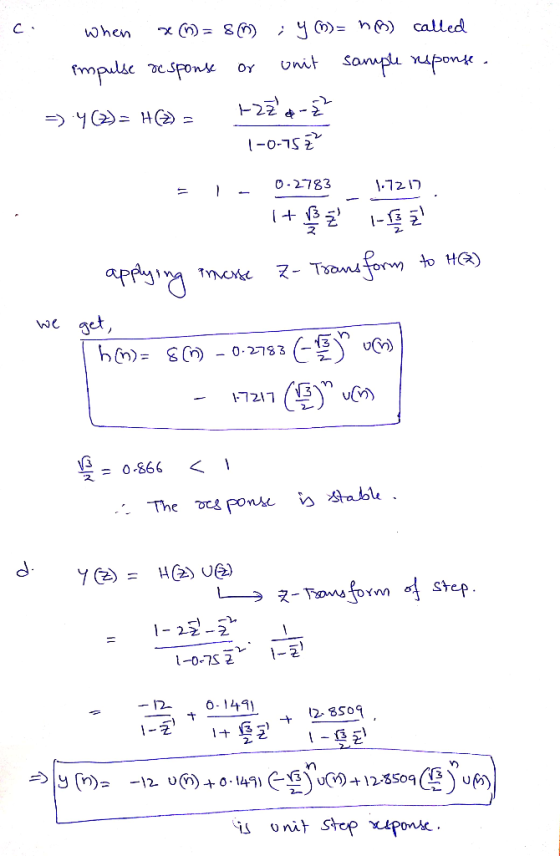 c. when x(n) = δ(n) ; y(n) = h(n) called
impulse response or unit sample response.
⇒ Y(z) = H(z) = (1-2z⁻¹ - z⁻²) / (1-0.75 z⁻²)
= 1 - 0.2783 / (1 + √3/2 z⁻¹) - 1.7217 / (1 - √3/2 z⁻¹).
applying inverse Z-Transform to H(z)
we get,
h(n) = δ(n) - 0.2783 (-√3/2)ⁿ u(n)
- 1.7217 (√3/2)ⁿ u(n)
√3/2 = 0.866 < 1
∴ The response is stable.
d. Y(z) = H(z) U(z)
↳ Z-Transform of step.
= (1-2z⁻¹-z⁻²) / (1-0.75 z⁻²) · 1 / (1-z⁻¹)
= -12 / (1-z⁻¹) + 0.1491 / (1 + √3/2 z⁻¹) + 12.8509 / (1 - √3/2 z⁻¹).
⇒ y(n) = -12 u(n) + 0.1491 (-√3/2)ⁿ u(n) + 12.8509 (√3/2)ⁿ u(n)
is unit step response.